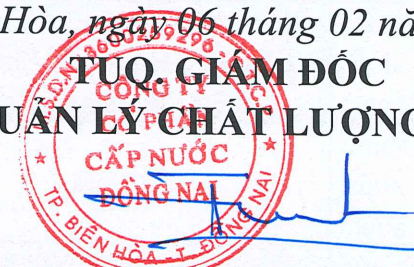 Hòa, ngày 06 tháng 02 nă
TUQ. GIÁM ĐỐC
UẢN LÝ CHẤT LƯỢNG
CÔNG TY
CỔ PHẦN
CẤP NƯỚC
ĐỒNG NAI
TP. BIÊN HÒA - T. ĐỒNG NAI